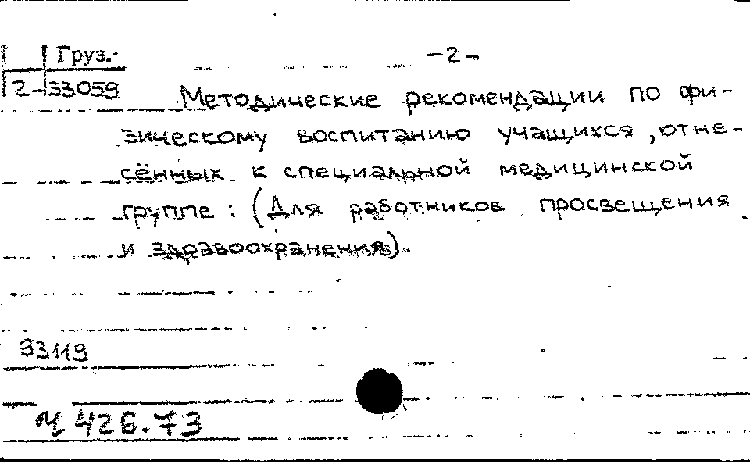 Груз.-
-2-
2-33059
Методические рекомендации по фи-
зическому воспитанию учащихся, отне-
сённых к специальной медицинской
группе: (Для работников просвещения
и здравоохранения).
93119
М 426.73